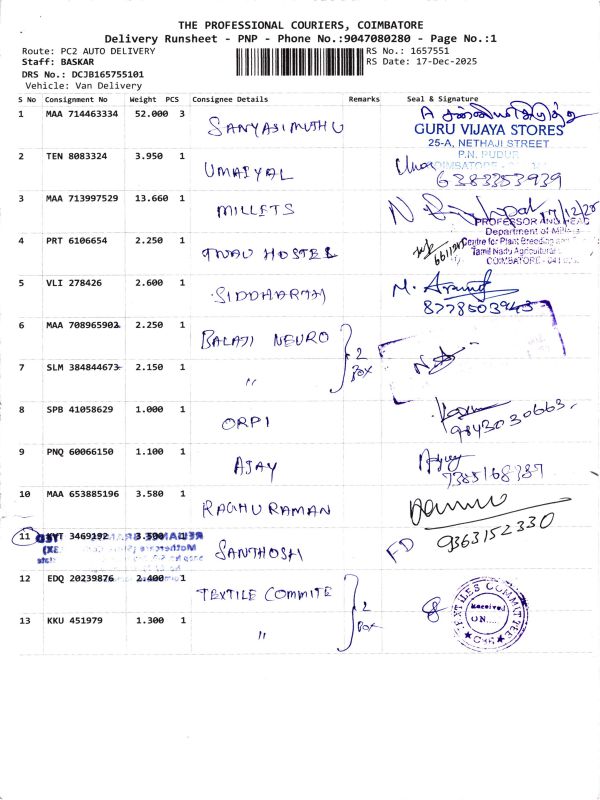 THE PROFESSIONAL COURIERS, COIMBATORE
Delivery Runsheet - PNP - Phone No.:9047080280 - Page No.:1
Route: PC2 AUTO DELIVERY
RS No.: 1657551
Staff: BASKAR
RS Date: 17-Dec-2025
DRS No.: DCJB165755101
Vehicle: Van Delivery
S No Consignment No Weight PCS Consignee Details Remarks Seal & Signature
1 MAA 714463334 52.000 3 SANYASIMUTHU
GURU VIJAYA STORES
25-A, NETHAJI STREET
P.N. PUDUR
COIMBATORE
2 TEN 8083324 3.950 1 UMAIYAL
6383353939
3 MAA 713997529 13.660 1 MILLETS 17/12/25
PROFESSOR AND HEAD
Department of Millets
Centre for Plant Breeding and
Tamil Nadu Agricultural
COIMBATORE
4 PRT 6106654 2.250 1 TNAU HOSTEL
5 VLI 278426 2.600 1 SIDDHARTH
M. Aravind
8778503943
6 MAA 708965902 2.250 1 BALAJI NEURO
7 SLM 384844673 2.150 1 "
2 BOX
8 SPB 41058629 1.000 1 ORPI
9843030663
9 PNQ 60066150 1.100 1 AJAY
Ajay
7385168387
10 MAA 653885196 3.580 1 RAGHU RAMAN
9363152330
11 3469192 3.500 SANTHOSH
FD
12 EDQ 20239876 2.400 1 TEXTILE COMMITE
13 KKU 451979 1.300 1 "
2 BOX
TEXTILES COMMITTEE
Received
ON....
CBE